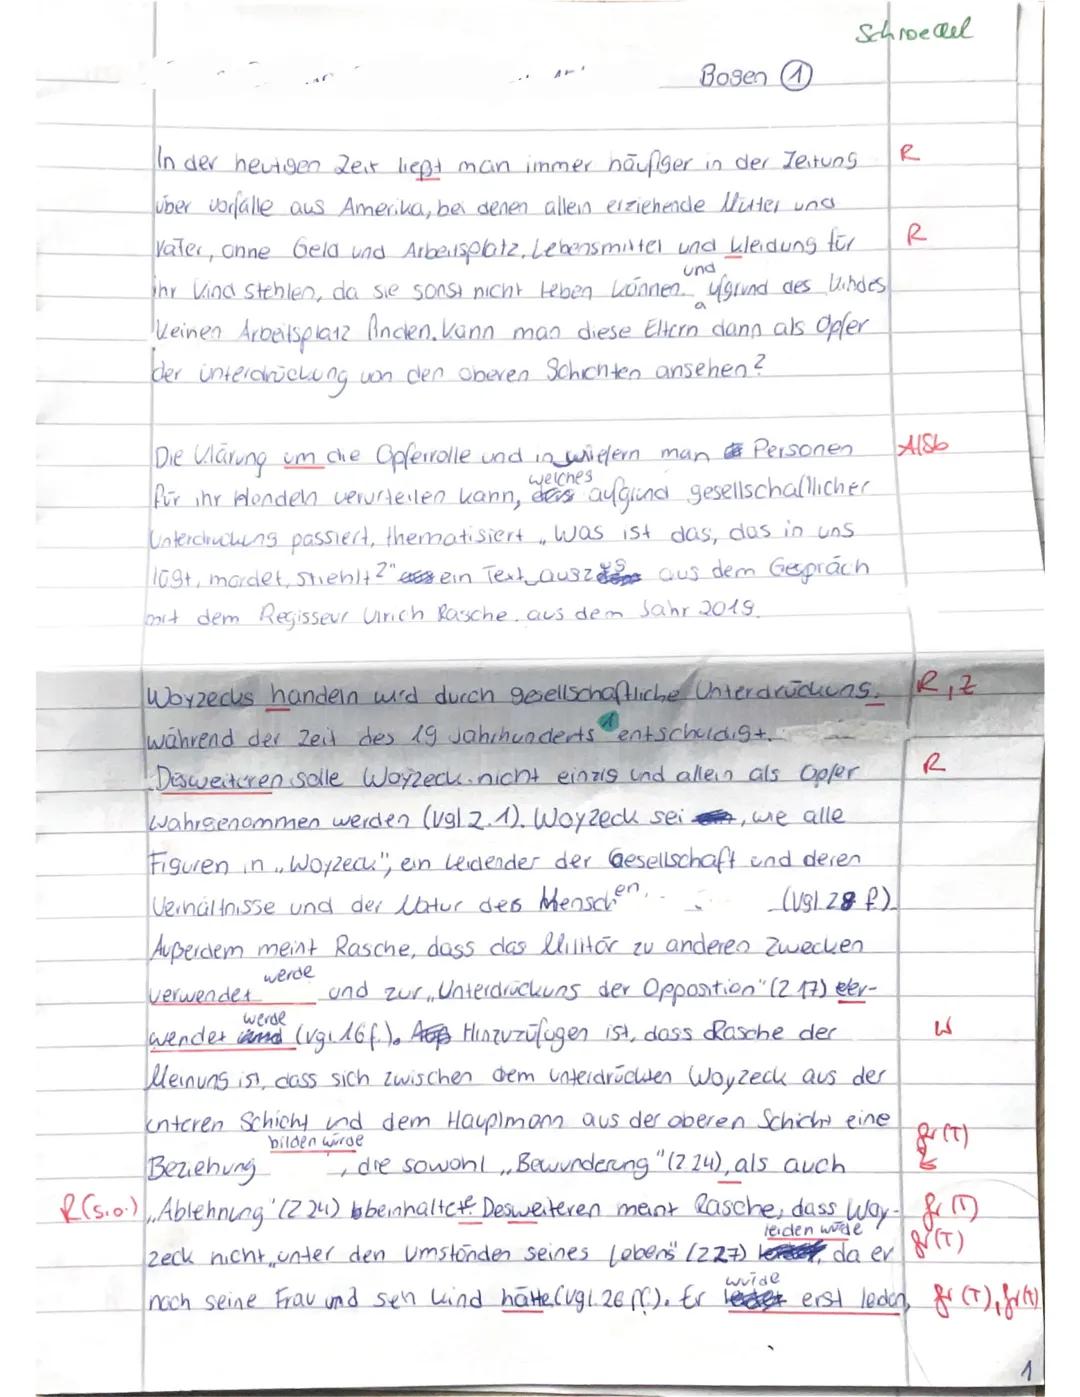 Schroedel
Bogen ①
In der heutigen Zeit ließt man immer häufiger in der Zeitung R
über vorfälle aus Amerika, bei denen allein erziehende Mütter und
Väter, ohne Geld und Arbeitsplatz, Lebensmittel und kleidung für R
ihr Kind stehlen, da sie sonst nicht leben können und aufgrund des Kindes
keinen Arbeitsplatz finden. Kann man diese Eltern dann als Opfer
der unterdrückung von den oberen Schichten ansehen?
Die Klärung um die Opferrolle und in wiefern man Personen A/Sb
für ihr Handeln verurteilen kann, welches aufgrund gesellschaftlicher
Unterdrückung passiert, thematisiert „Was ist das, das in uns
lügt, mordet, stiehlt?" ein Text aus dem Gespräch
mit dem Regisseur Ulrich Rasche aus dem Jahr 2019.
Woyzecks handeln wird durch gesellschaftliche Unterdrückung, R, Z
während der Zeit des 19 Jahrhunderts 1 entschuldigt.
Desweiteren solle Woyzeck nicht einzig und allein als Opfer R
wahrgenommen werden (vgl Z.1). Woyzeck sei, wie alle
Figuren in „Woyzeck", ein Leidender der Gesellschaft und deren
Verhältnisse und der Natur des Menschen. (vgl. Z8 f).
Außerdem meint Rasche, dass das Militär zu anderen Zwecken
verwendet werde und zur „Unterdrückung der Opposition" (Z 17) ver-
wendet werde (vgl. 16f.). Hinzuzufügen ist, dass Rasche der W
Meinung ist, dass sich zwischen dem unterdrückten Woyzeck aus der
unteren Schicht und dem Hauptmann aus der oberen Schicht eine
Beziehung bilden würde, die sowohl „Bewunderung" (Z.24), als auch gr (T)
R (s.o.) „Ablehnung" (Z 24) beinhaltete. Desweiteren meint Rasche, dass Woy- gr (T)
zeck nicht „unter den Umständen seines Lebens" (Z27) leiden würde, da er gr (T)
noch seine Frau und sein Kind hätte (vgl. 26 ff.). Er würde erst leiden, gr (T), gr (T)
1